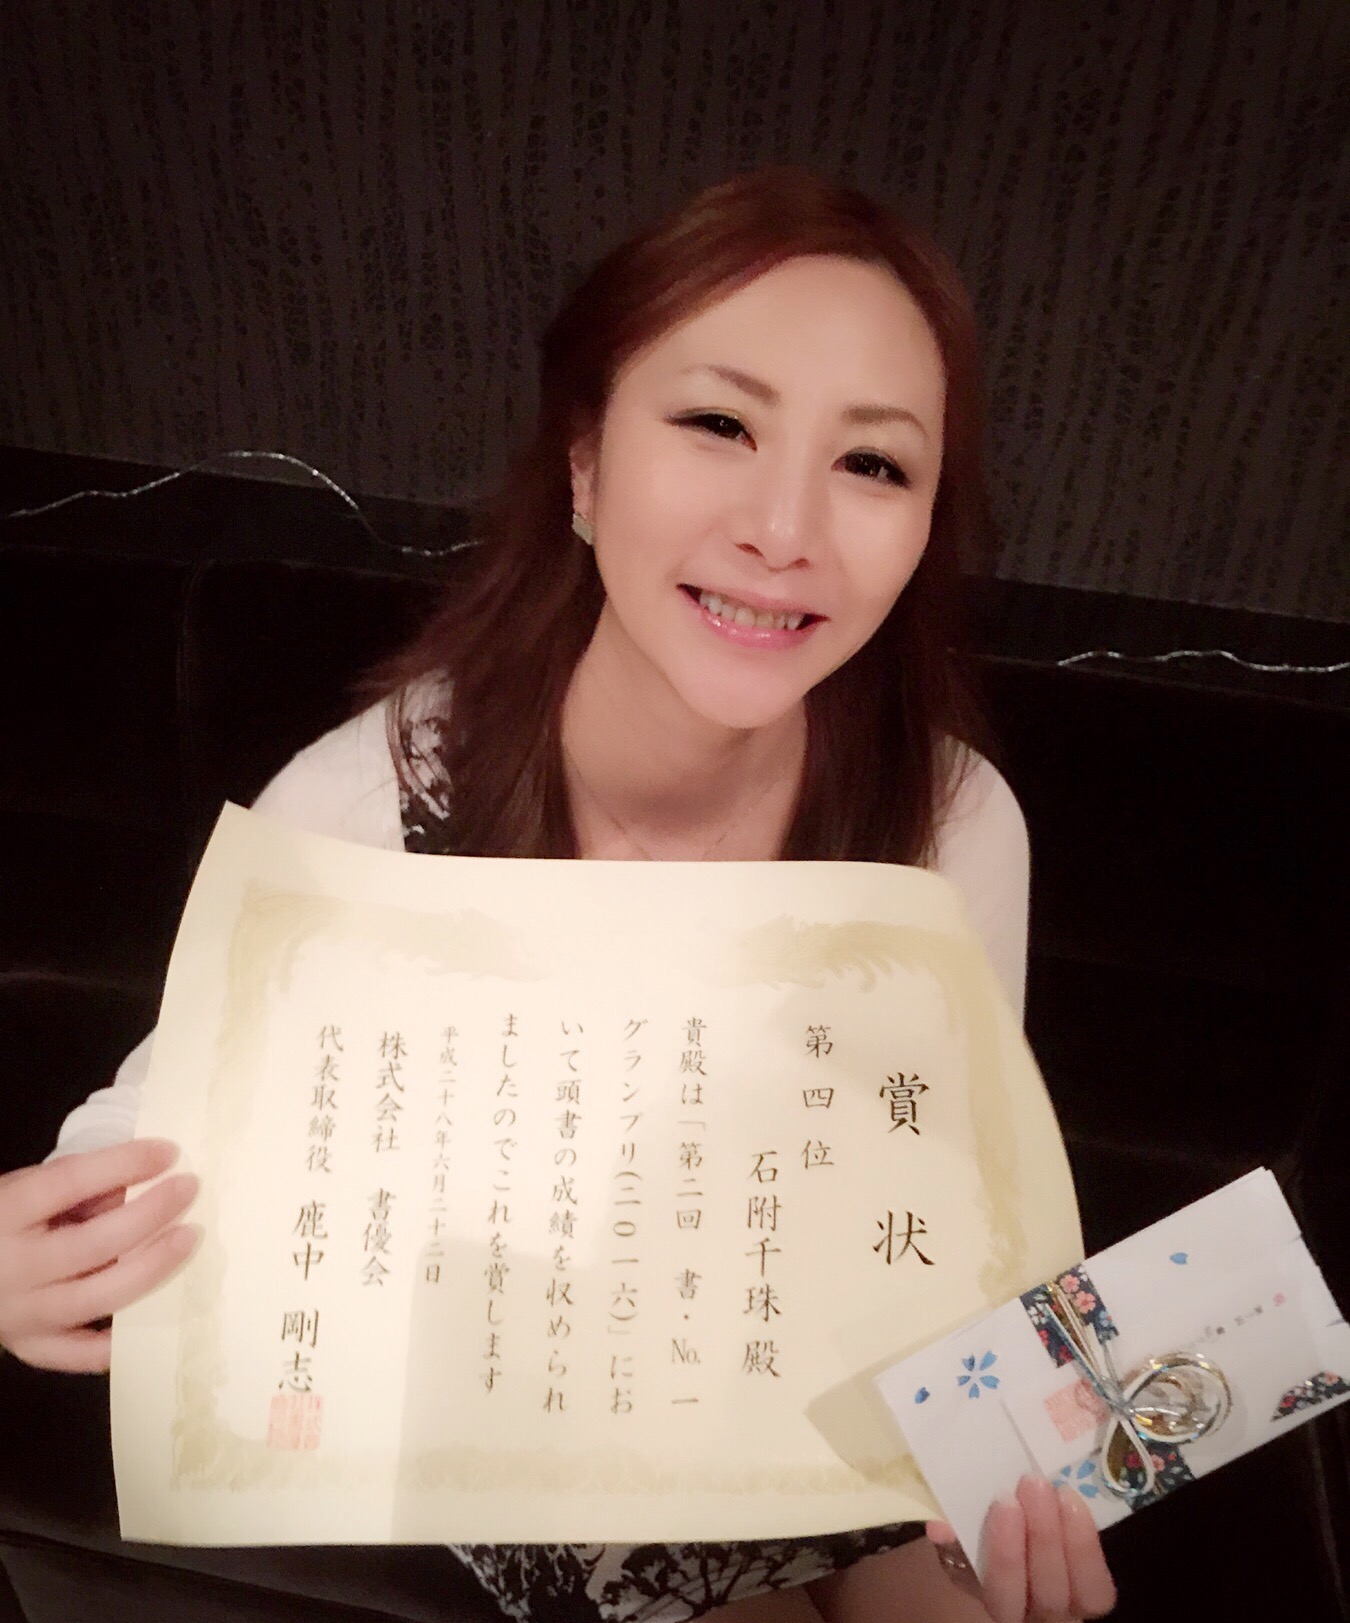 賞状
第四位
石附千珠殿
貴殿は「第二回 書・No.一
グランプリ(二〇一六)」にお
いて頭書の成績を収められ
ましたのでこれを賞します
平成二十八年六月二十二日
株式会社 書優会
代表取締役 鹿中 剛志